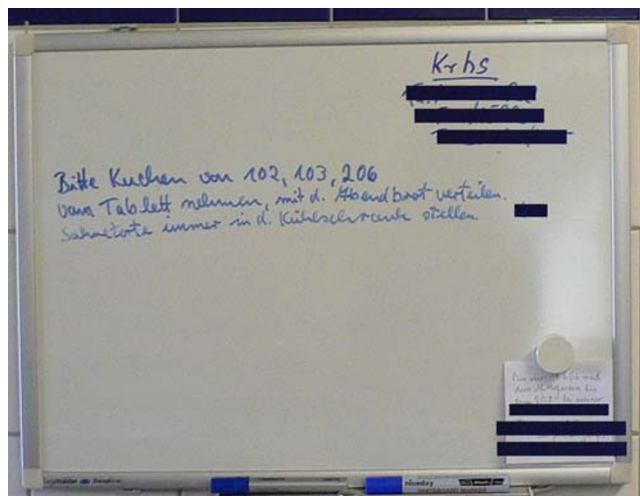 Krhs
Bitte Kuchen von 102, 103, 206
vom Tablett nehmen, mit d. Abendbrot verteilen.
Sahnetorte immer in d. Kühlschrank stellen.